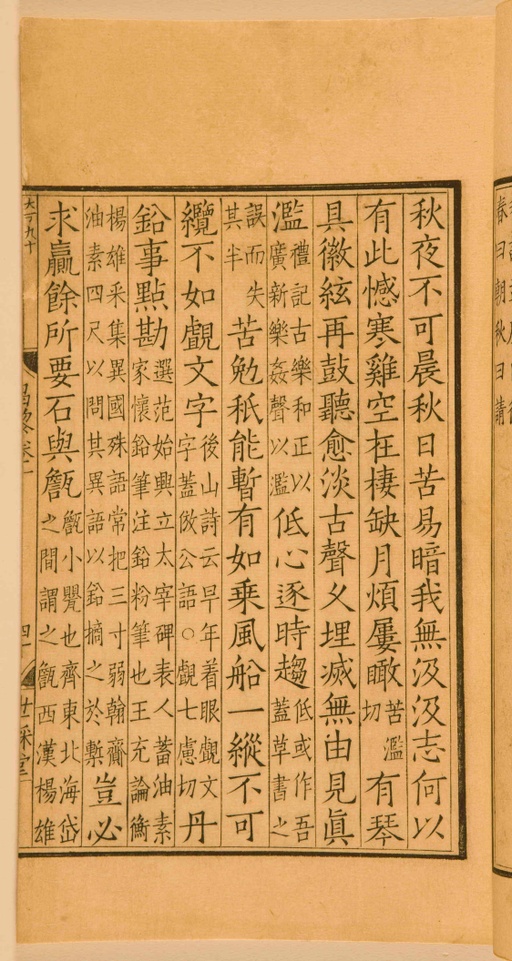 春曰朝秋曰請
秋夜不可晨秋日苦易暗我無汲汲志何以
有此憾寒雞空在棲缺月煩屢瞰苦濫切有琴
具徽絃再鼓聽愈淡古聲久埋滅無由見眞
濫禮記古樂和正以廣新樂姦聲以濫低心逐時趨低或作吾蓋草書之
誤而失其半苦勉秪能暫有如乘風船一縱不可
纜不如覷文字後山詩云早年着眼覷文字蓋倣公語○覷七慮切丹
鉛事點勘選范始興立太宰碑表人蓄油素家懷鉛筆注鉛粉筆也王充論衡
楊雄采集異國殊語常把三寸弱翰齎油素四尺以問其異語以鉛摘之於槧豈必
求贏餘所要石與甔甔小甖也齊東北海岱之間謂之甔西漢楊雄